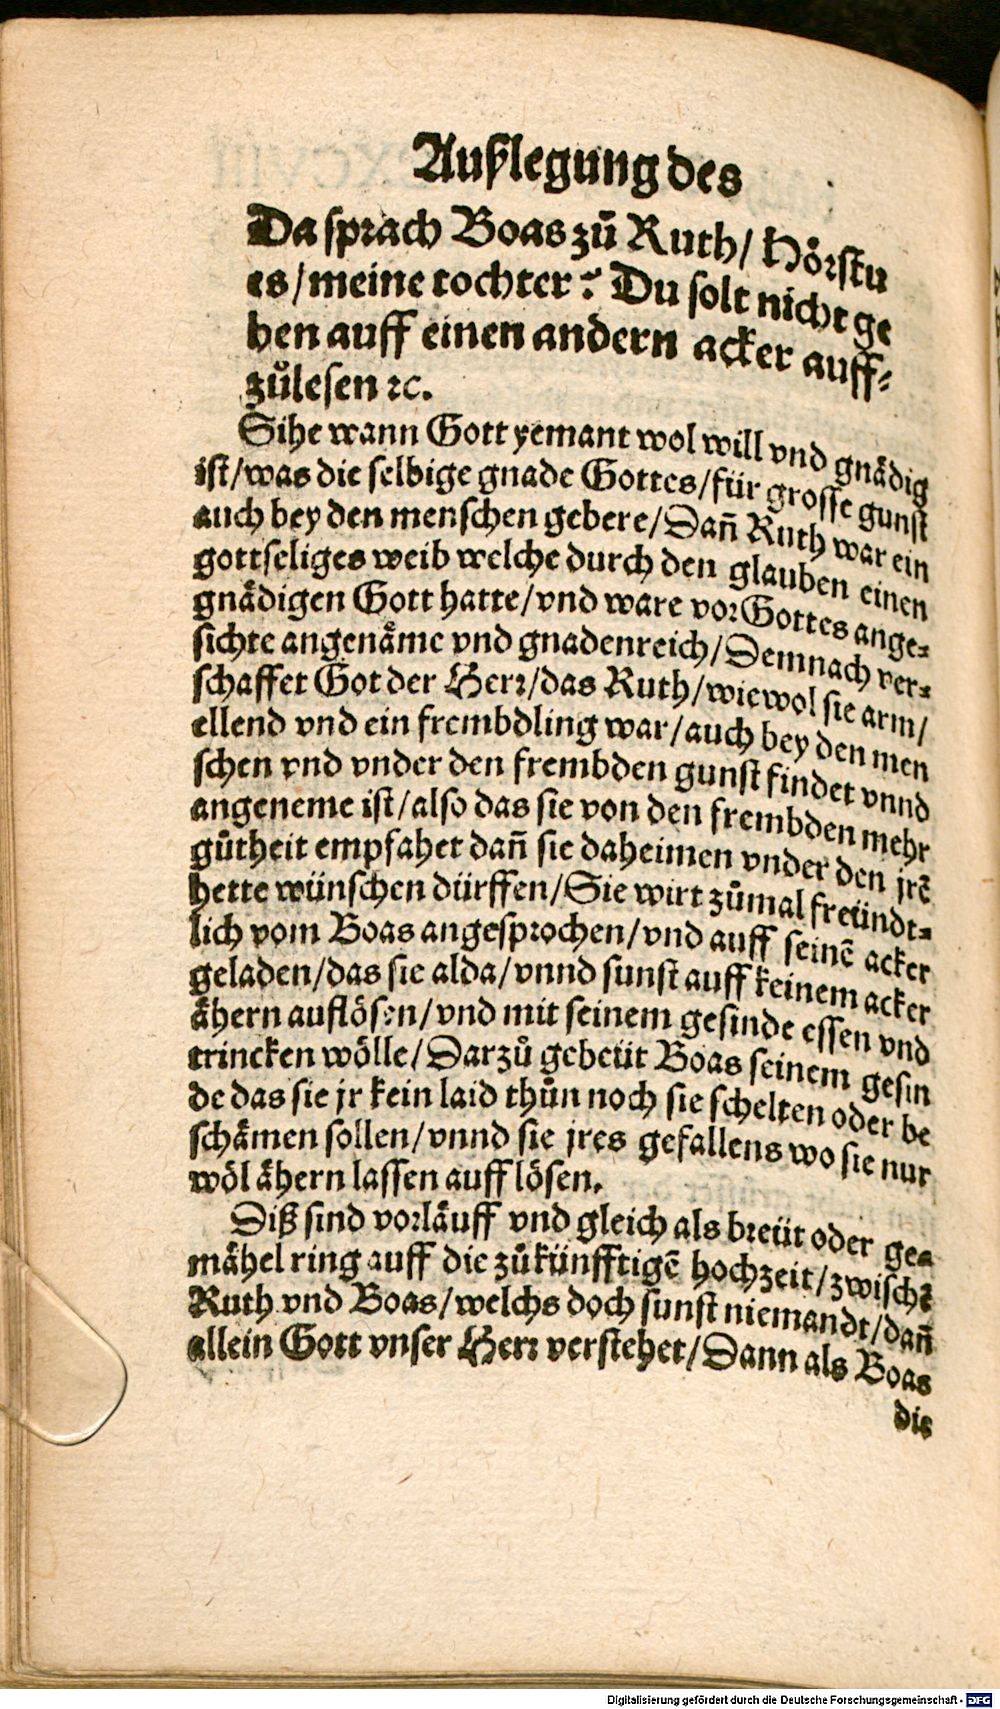 Außlegung des
Da sprach Boas zů Ruth/ Hörstu
es/ meine tochter? Du solt nicht ge
hen auff einen andern acker auff-
zůlesen ꝛc.
Sihe wann Gott yemant wol will vnd gnädig
ist/ was die selbige gnade Gottes/ für grosse gunst
auch bey den menschen gebere/ Dañ Ruth war ein
gottseliges weib welche durch den glauben einen
gnädigen Gott hatte/ vnd ware vor Gottes ange-
sichte angenäme vnd gnadenreich/ Demnach ver-
schaffet Got der Herr/ das Ruth/ wiewol sie arm/
ellend vnd ein frembdling war/ auch bey den men
schen vnd vnder den frembden gunst findet vnnd
angeneme ist/ also das sie von den frembden mehr
gůtheit empfahet dañ sie daheimen vnder den jrẽ
hette wünschen dürffen/ Sie wirt zůmal freündt-
lich vom Boas angesprochen/ vnd auff seinẽ acker
geladen/ das sie alda/ vnnd sunst auff keinem acker
ähern auflösen/ vnd mit seinem gesinde essen vnd
trincken wölle/ Darzů gebeüt Boas seinem gesin
de das sie jr kein laid thůn noch sie schelten oder be
schämen sollen/ vnnd sie jres gefallens wo sie nur
wöl ähern lassen auff lösen.
Diß sind vorläuff vnd gleich als breüt oder ge-
mähel ring auff die zůkünfftigẽ hochzeit/ zwischẽ
Ruth vnd Boas/ welchs doch sunst niemandt/ dañ
allein Gott vnser Herr verstehet/ Dann als Boas
die
Digitalisierung gefördert durch die Deutsche Forschungsgemeinschaft - DFG